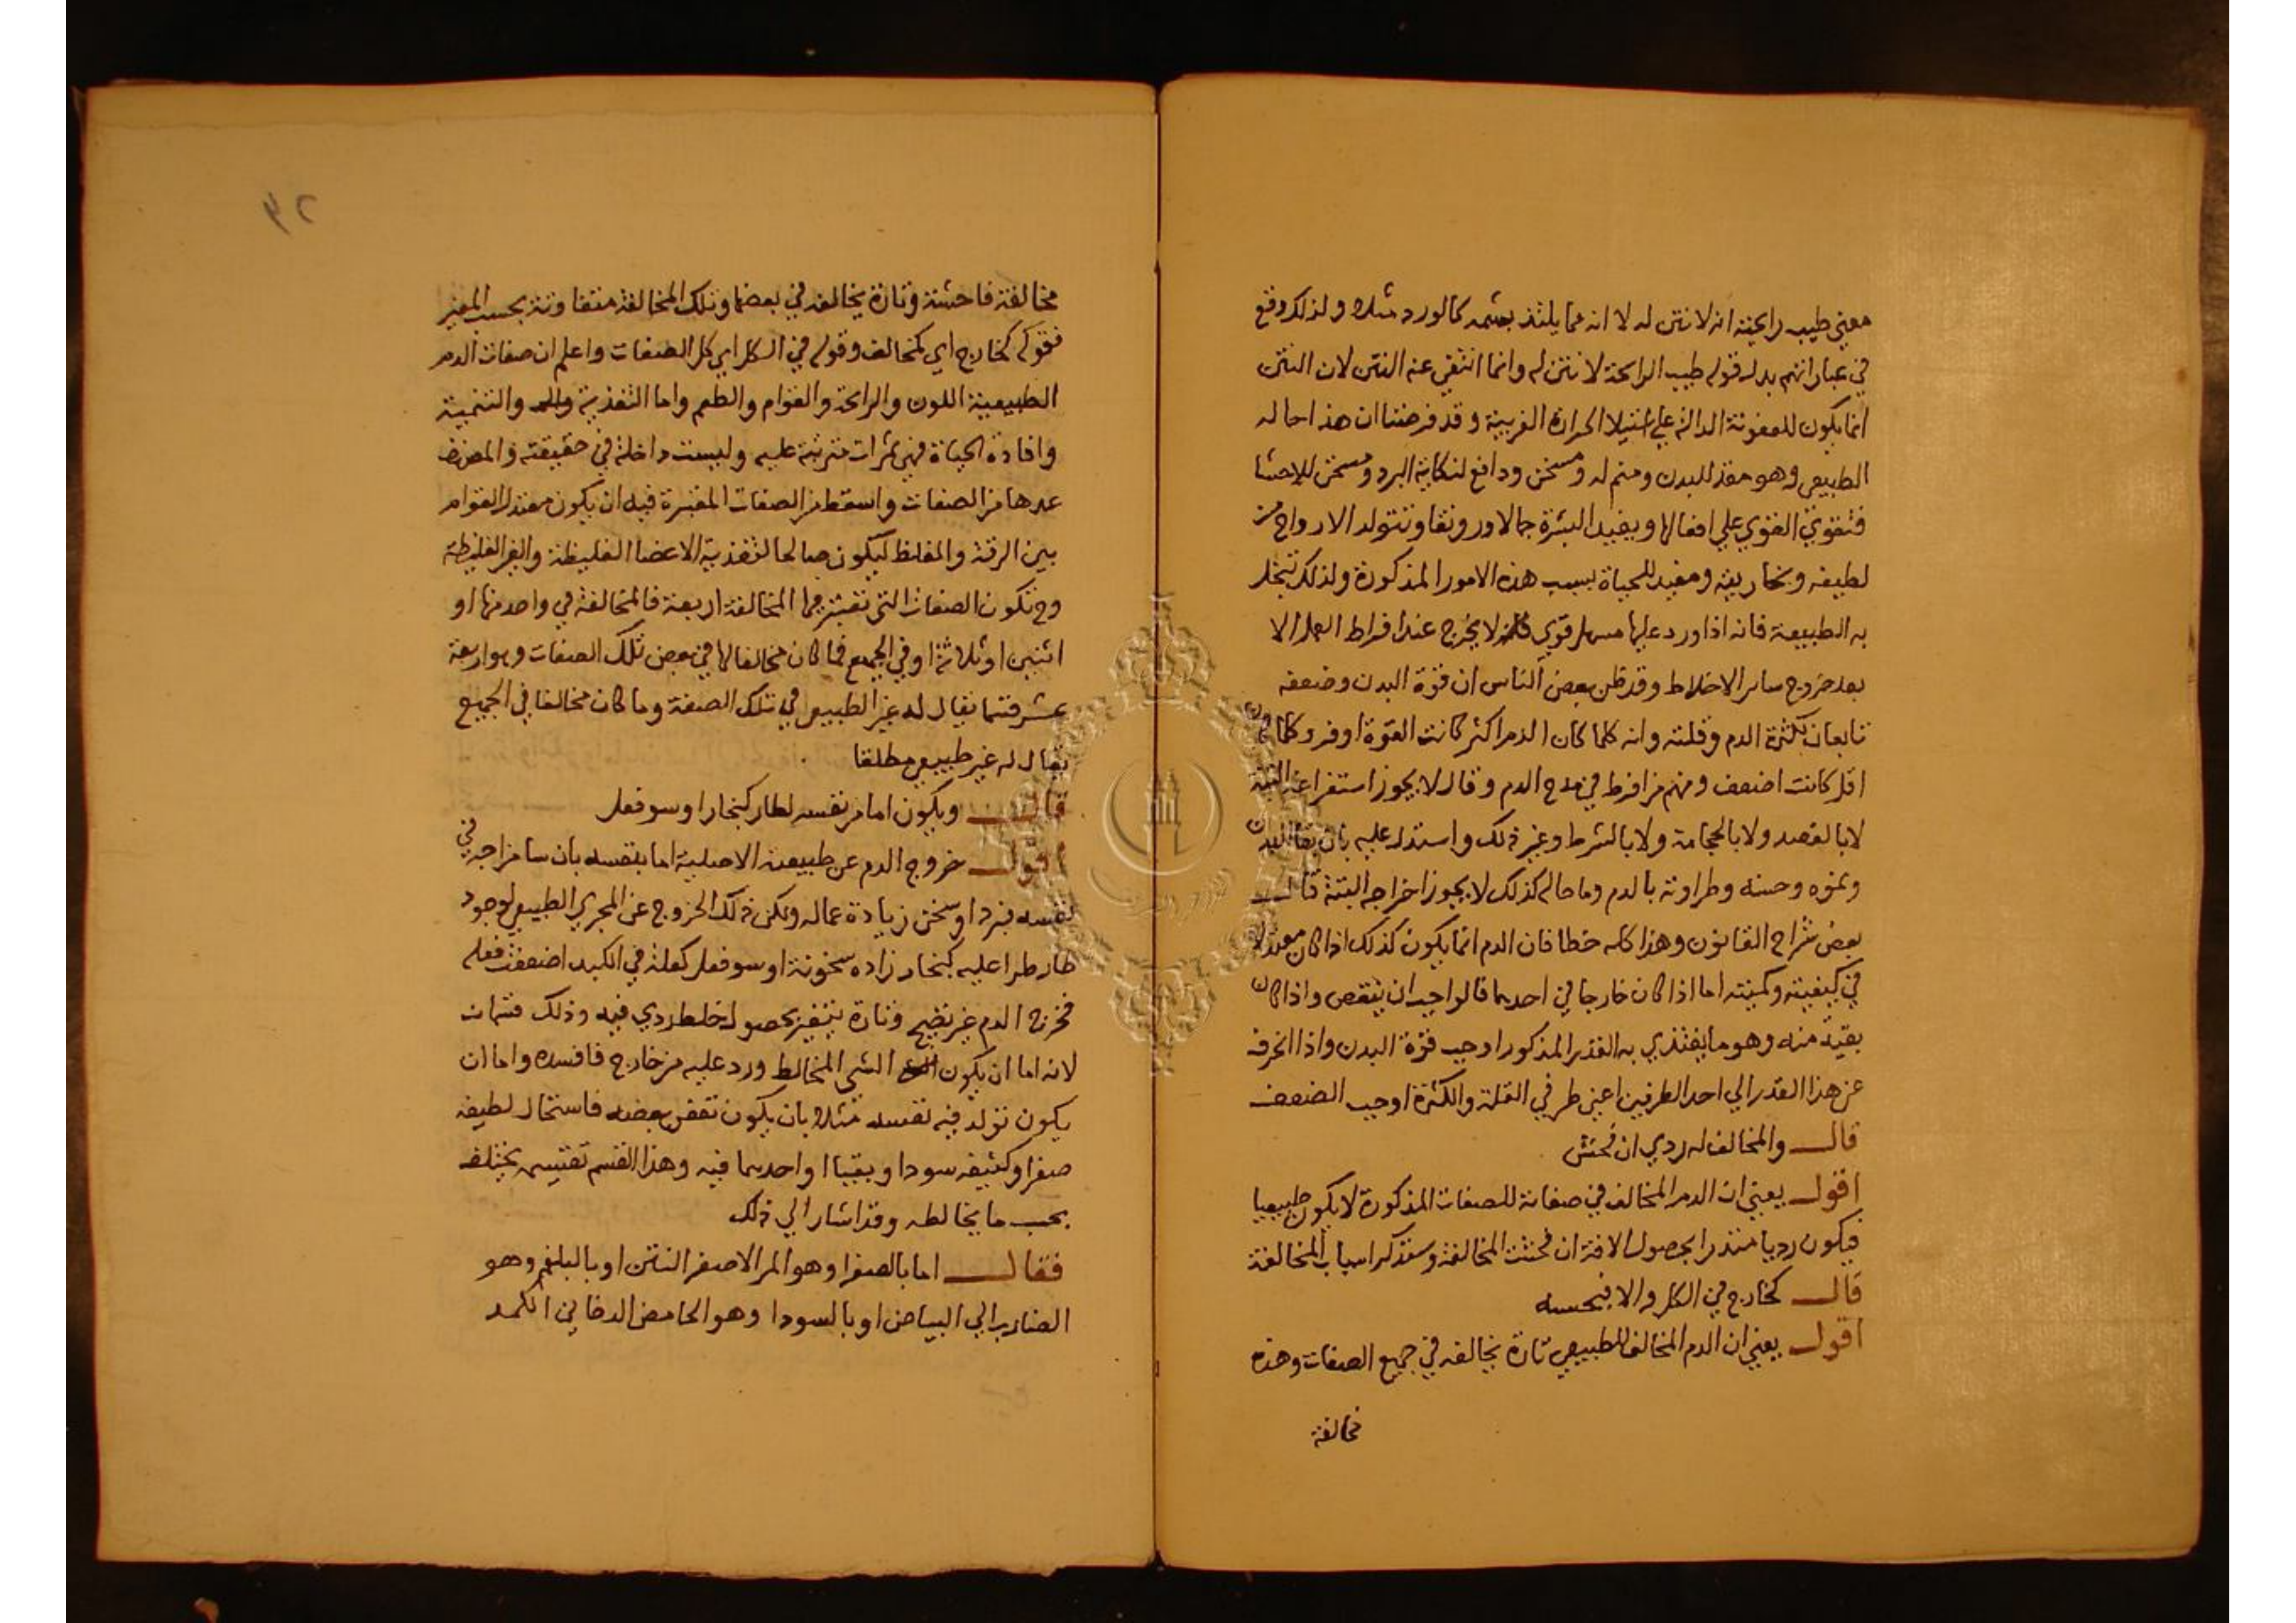 معني طيب رايحته انه لا نتن له لا انه مما يلتذ بشمه كالورد مثلا ولذلك وقع
في عباراتهم بدل قوله طيب الرايحة لا نتن له وانما انتفي عنه النتن لان النتن
انما يكون للعفونة الدالة علي استيلا الحرارة الغريبة وقد فرضنا ان هذا حاله
الطبيعي وهو مغذ للبدن ومنم له ومسخن ودافع لنكاية البرد ومسخن للاحشا
فتقوي القوي علي افعالها ويفيد البشرة جمالا ورونقا وتتولد الارواح من
لطيفه وبخاريته ومفيد للحياة بسبب هذه الامور المذكورة ولذلك تبخل
به الطبيعة فانه اذا ورد عليها مسهل قوي لا يخرج عند افراط العمل الا
بعد خروج ساير الاخلاط وقد ظن بعض الناس ان قوة البدن وضعفه
تابعان لكثرة الدم وقلته وانه كلما كان الدم اكثر كانت القوة اوفر وكلما كان
اقل كانت اضعف ومنهم من افرط في مدح الدم وقال لا يجوز استفراغه البتة
لا بالفصد ولا بالحجامة ولا بالشرط وغير ذلك واستدل عليه بان بقا البدن
ونموه وحسنه وطراوته بالدم وما حاله كذلك لا يجوز اخراجه البتة قال
بعض شراح القانون وهذا كله خطا فان الدم انما يكون كذلك اذا كان معتدلا
في كيفيته وكميته اما اذا كان خارجا في احدهما فالواجب ان ينقص واذا كان
بقية منه وهو ما يغتذي به القدر المذكور اوجب قوة البدن واذا انحرف
عن هذا القدر الي احد الطرفين اعني طرفي القلة والكثرة اوجب الضعف
قال والمخالف له ردي ان فحش
اقول يعني ان الدم المخالف في صفاته للصفات المذكورة لا يكون طبيعيا
فيكون رديا منذرا بحصول الافة ان فحشت المخالفة وستذكر اسباب المخالفة
قال كخارج في الكل والا فبحسبه
اقول يعني ان الدم المخالف للطبيعي تارة يخالفه في جميع الصفات وهذه
مخالفة
٢٤
مخالفة فاحشة وتارة يخالفه في بعضها وتلك المخالفة متفاوتة بحسب المغير
فقوله كخارج اي كمخالف وقوله في الكل اي كل الصفات واعلم ان صفات الدم
الطبيعية اللون والرايحة والقوام والطعم واما التغذية والتنمية
وافادة الحياة فهي ثمرات مترتبة عليه وليست داخلة في حقيقته والمصنف
عدها من الصفات واسقط من الصفات المعتبرة فيه ان يكون معتدل القوام
بين الرقة والغلظ ليكون صالحا لتغذية الاعضا الغليظة والغير الغليظة
وح تكون الصفات التي تعتبر فيها المخالفة اربعة فالمخالفة في واحد منها او
اثنين او ثلاثة او في الجميع فما كان مخالفا لها في بعض تلك الصفات وهو اربعة
عشر قسما يقال له غير الطبيعي في تلك الصفة وما كان مخالفا في الجميع
يقال له غير طبيعي مطلقا
قال ويكون اما من نفسه لطار كبخار او سو فعل
اقول خروج الدم عن طبيعته الاصلية اما بنفسه بان سا مزاجه في
نفسه فبرد او سخن زيادة عماله ولكن ذلك الخروج عن المجري الطبيعي لوجود
طار طرا عليه كبخار زاده سخونة او سو فعل كعلة في الكبد اضعفت فعله
فخرج الدم غير نضيج وتارة يتغير بحصول خلط ردي فيه وذلك قسمان
لانه اما ان يكون الشي المخالط ورد عليه من خارج فافسده واما ان
يكون تولد فيه نفسه مثلا بان يكون تعفن بعضه فاستحال لطيفه
صفرا وكثيفه سودا وبقيا او احدهما فيه وهذا القسم تقسيمه يختلف
بحسب ما يخالطه وقد اشار الي ذلك
فقال اما بالصفرا وهو المر الاصفر النتن او بالبلغم وهو
الضارب الي البياض او بالسودا وهو الحامض الدخاني الكمد